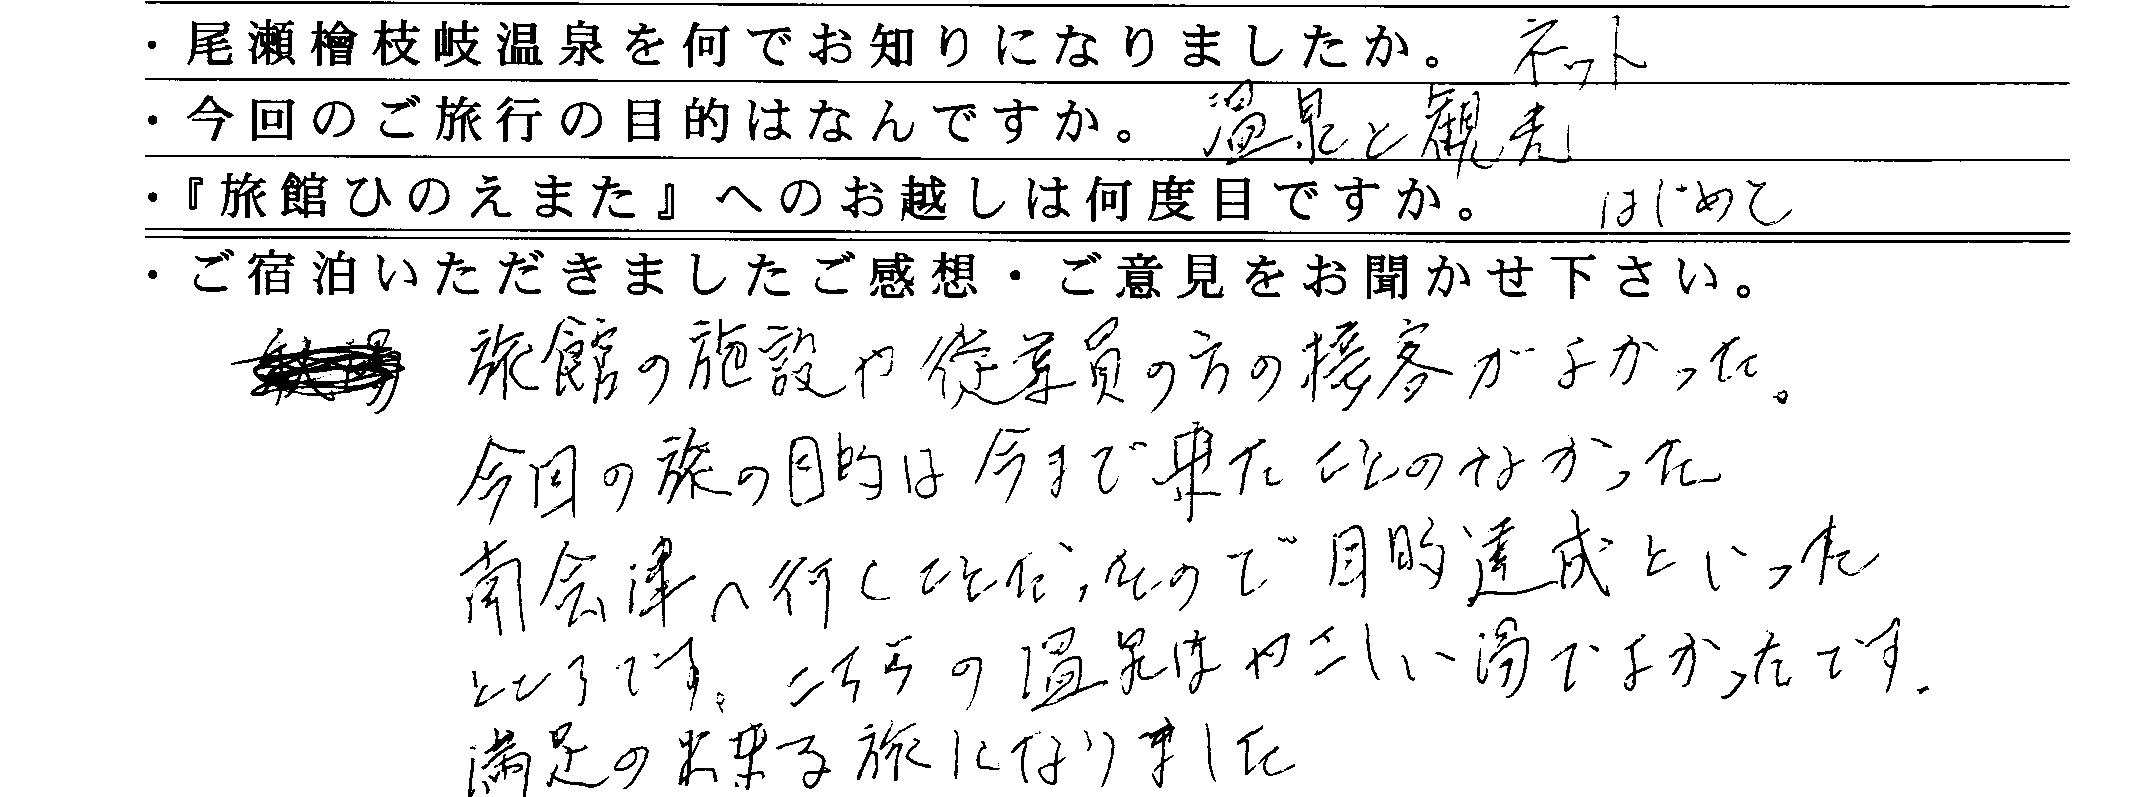 ・尾瀬檜枝岐温泉を何でお知りになりましたか。 ネット
・今回のご旅行の目的はなんですか。 温泉と観光
・『旅館ひのえまた』へのお越しは何度目ですか。 はじめて
・ご宿泊いただきましたご感想・ご意見をお聞かせ下さい。
旅館の施設や従業員の方の接客がよかった。
今回の旅の目的は今まで来たことのなかった
南会津へ行くことだったので目的達成といった
ところです。こちらの温泉はやさしい湯でよかったです.
満足の出来る旅になりました